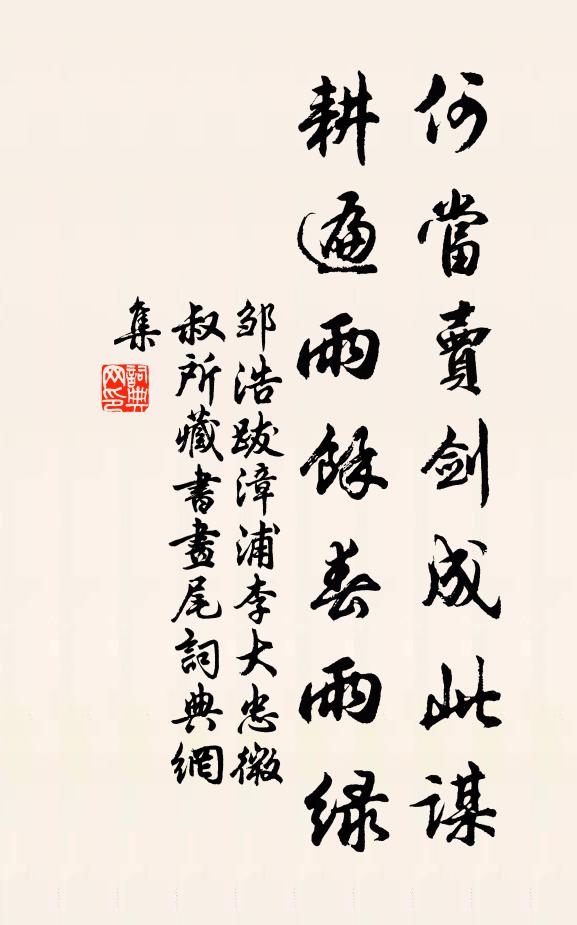 何當賣劍成此謀
耕遍雨餘春雨綠
邹浩跋漳浦李大忠微
叔所藏書畫尾詞典網
集
詞典網印